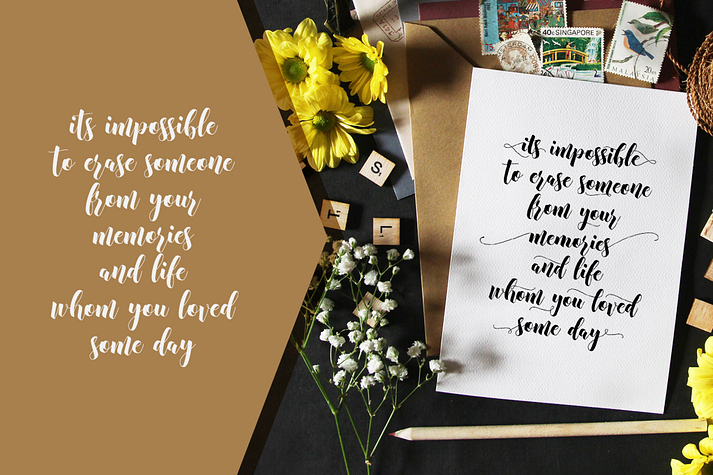 its impossible
to erase someone
from your
memories
and life
whom you loved
some day
S
T
L
40c SINGAPORE
MALAYSIA 20sen
its impossible
to erase someone
from your
memories
and life
whom you loved
some day